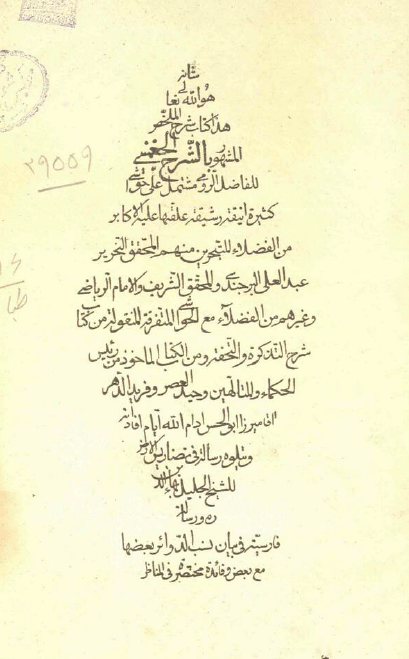 هو الله تعا
لى شانه
هذا كتاب شرح الملخص
المشهور بالشرح الجغمینی
للفاضل الرومی مشتمل علی حواشی
کثیرة انیقة رشیقة علقها علیه الاکابر
من الفضلاء المتبحرین منهم المحقق النحریر
عبد العلی البرجندی والمحقق الشریف والامام الریاضی
وغیرهم من الفضلاء مع الحواشی المتفرقة المنقولة من کتاب
شرح التذکرة والتحفة ومن الکتاب الماخوذ من رئیس
الحکماء والمتالهین وحید العصر وفرید الدهر
اقا میرزا ابو الحسن ادام الله ایام افاداته
ویتلوه رسالة فی تضاریس الارض
للشیخ الجلیل بهاء الدین
ره ورسالة
فارسیة فی بیان نسب الدوائر بعضها
مع بعض وفائدة مختصرة فی المناظر
۲۹۵۵۹